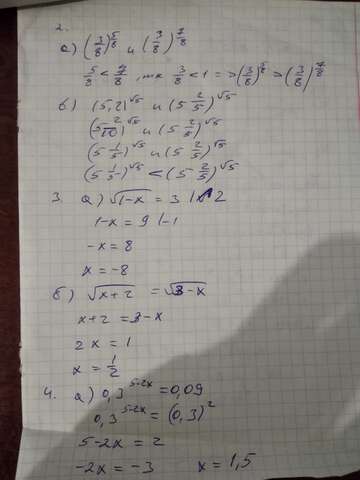 2.
а) (3/8)^5/8 и (3/8)^7/8
5/8 < 7/8, тк 3/8 < 1 => (3/8)^5/8 > (3/8)^7/8
б) (5,2)^√5 и (5 2/5)^√5
(5 2/10)^√5 и (5 2/5)^√5
(5 1/5)^√5 и (5 2/5)^√5
(5 1/5)^√5 < (5 2/5)^√5
3. а) √1-x = 3 | 2
1-x = 9 |-1
-x = 8
x = -8
б) √x+2 = √3-x
x+2 = 3-x
2x = 1
x = 1/2
4. а) 0,3^5-2x = 0,09
0,3^5-2x = (0,3)^2
5-2x = 2
-2x = -3 x = 1,5